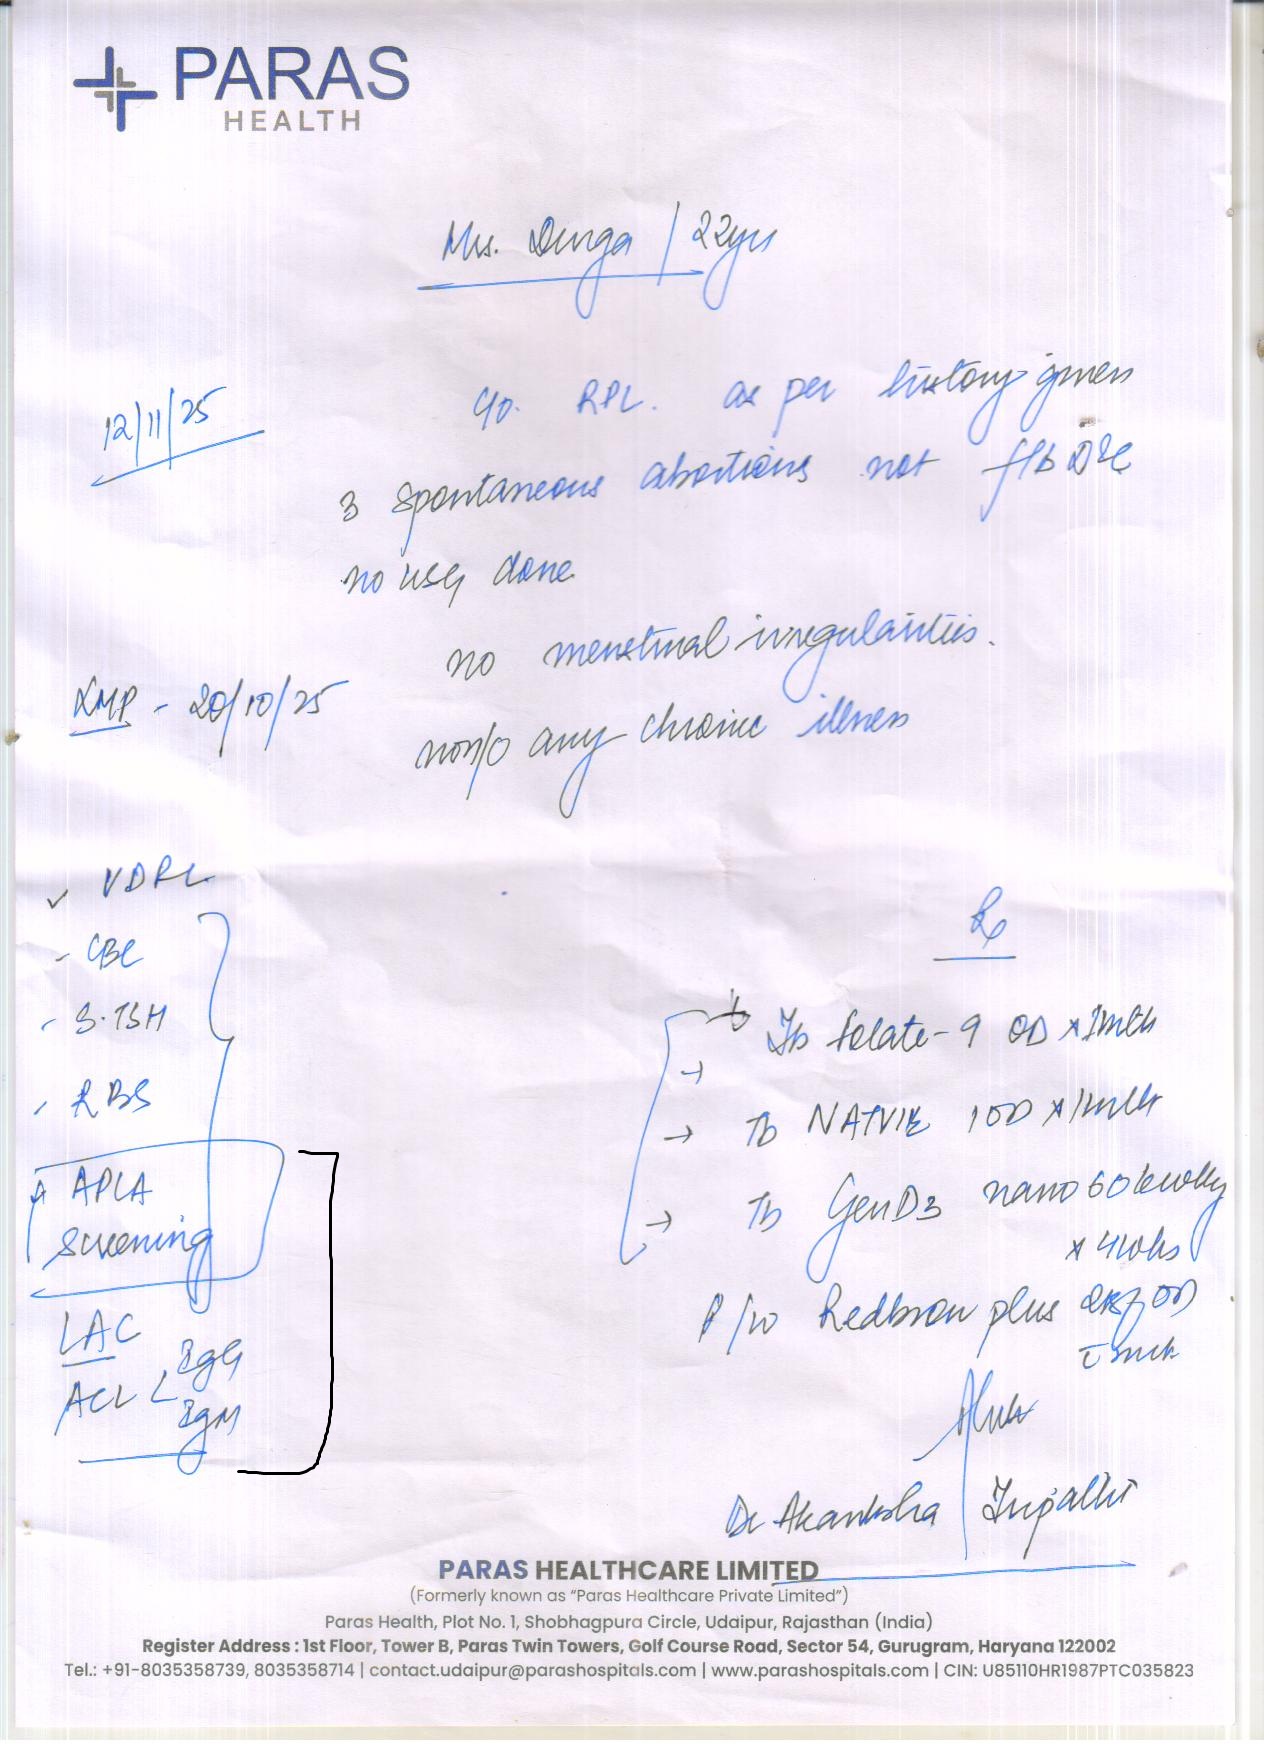 PARAS
HEALTH
Mrs. Durga / 22yrs
12/11/25
c/o. RPL. as per history given
3 spontaneous abortions not f/b D&C
no USG done
no menstrual irregularities.
LMP - 20/10/25
no h/o any chronic illness
VDRL
- CBC
- S.TSH
- RBS
APLA
Screening
LAC
ACL < IgG
IgM
Rx
→ Tb folate-9 OD x 1mth
→
→ Tb NATVIE 1OD x 1mth
→ Tb GenD3 nano 60k wkly
x 4wks
P/w Redbron plus OD
Dr Akanksha Tripathi
PARAS HEALTHCARE LIMITED
(Formerly known as “Paras Healthcare Private Limited”)
Paras Health, Plot No. 1, Shobhagpura Circle, Udaipur, Rajasthan (India)
Register Address : 1st Floor, Tower B, Paras Twin Towers, Golf Course Road, Sector 54, Gurugram, Haryana 122002
Tel.: +91-8035358739, 8035358714 | contact.udaipur@parashospitals.com | www.parashospitals.com | CIN: U85110HR1987PTC035823